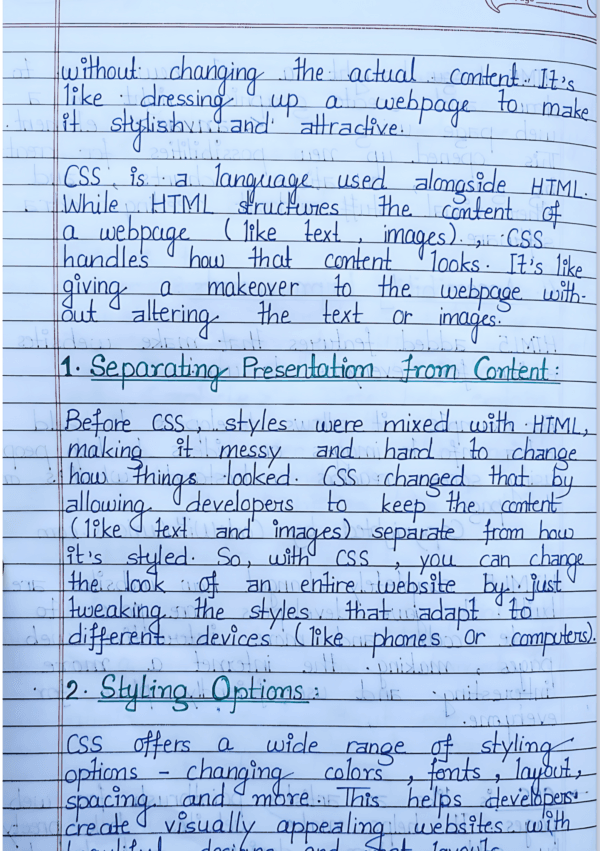 without changing the actual content. It's
like dressing up a webpage to make
it stylish and attractive.
CSS is a language used alongside HTML.
While HTML structures the content of
a webpage (like text, images)., CSS
handles how that content looks. It's like
giving a makeover to the webpage with-
out altering the text or images.
1. Separating Presentation from Content:
Before CSS, styles were mixed with HTML,
making it messy and hard to change
how things looked. CSS changed that by
allowing developers to keep the content
(like text and images) separate from how
it's styled. So, with CSS, you can change
the look of an entire website by just
tweaking the styles that adapt to
different devices (like phones or computers).
2. Styling Options:
CSS offers a wide range of styling
options - changing colors, fonts, layout,
spacing and more. This helps developers
create visually appealing websites with